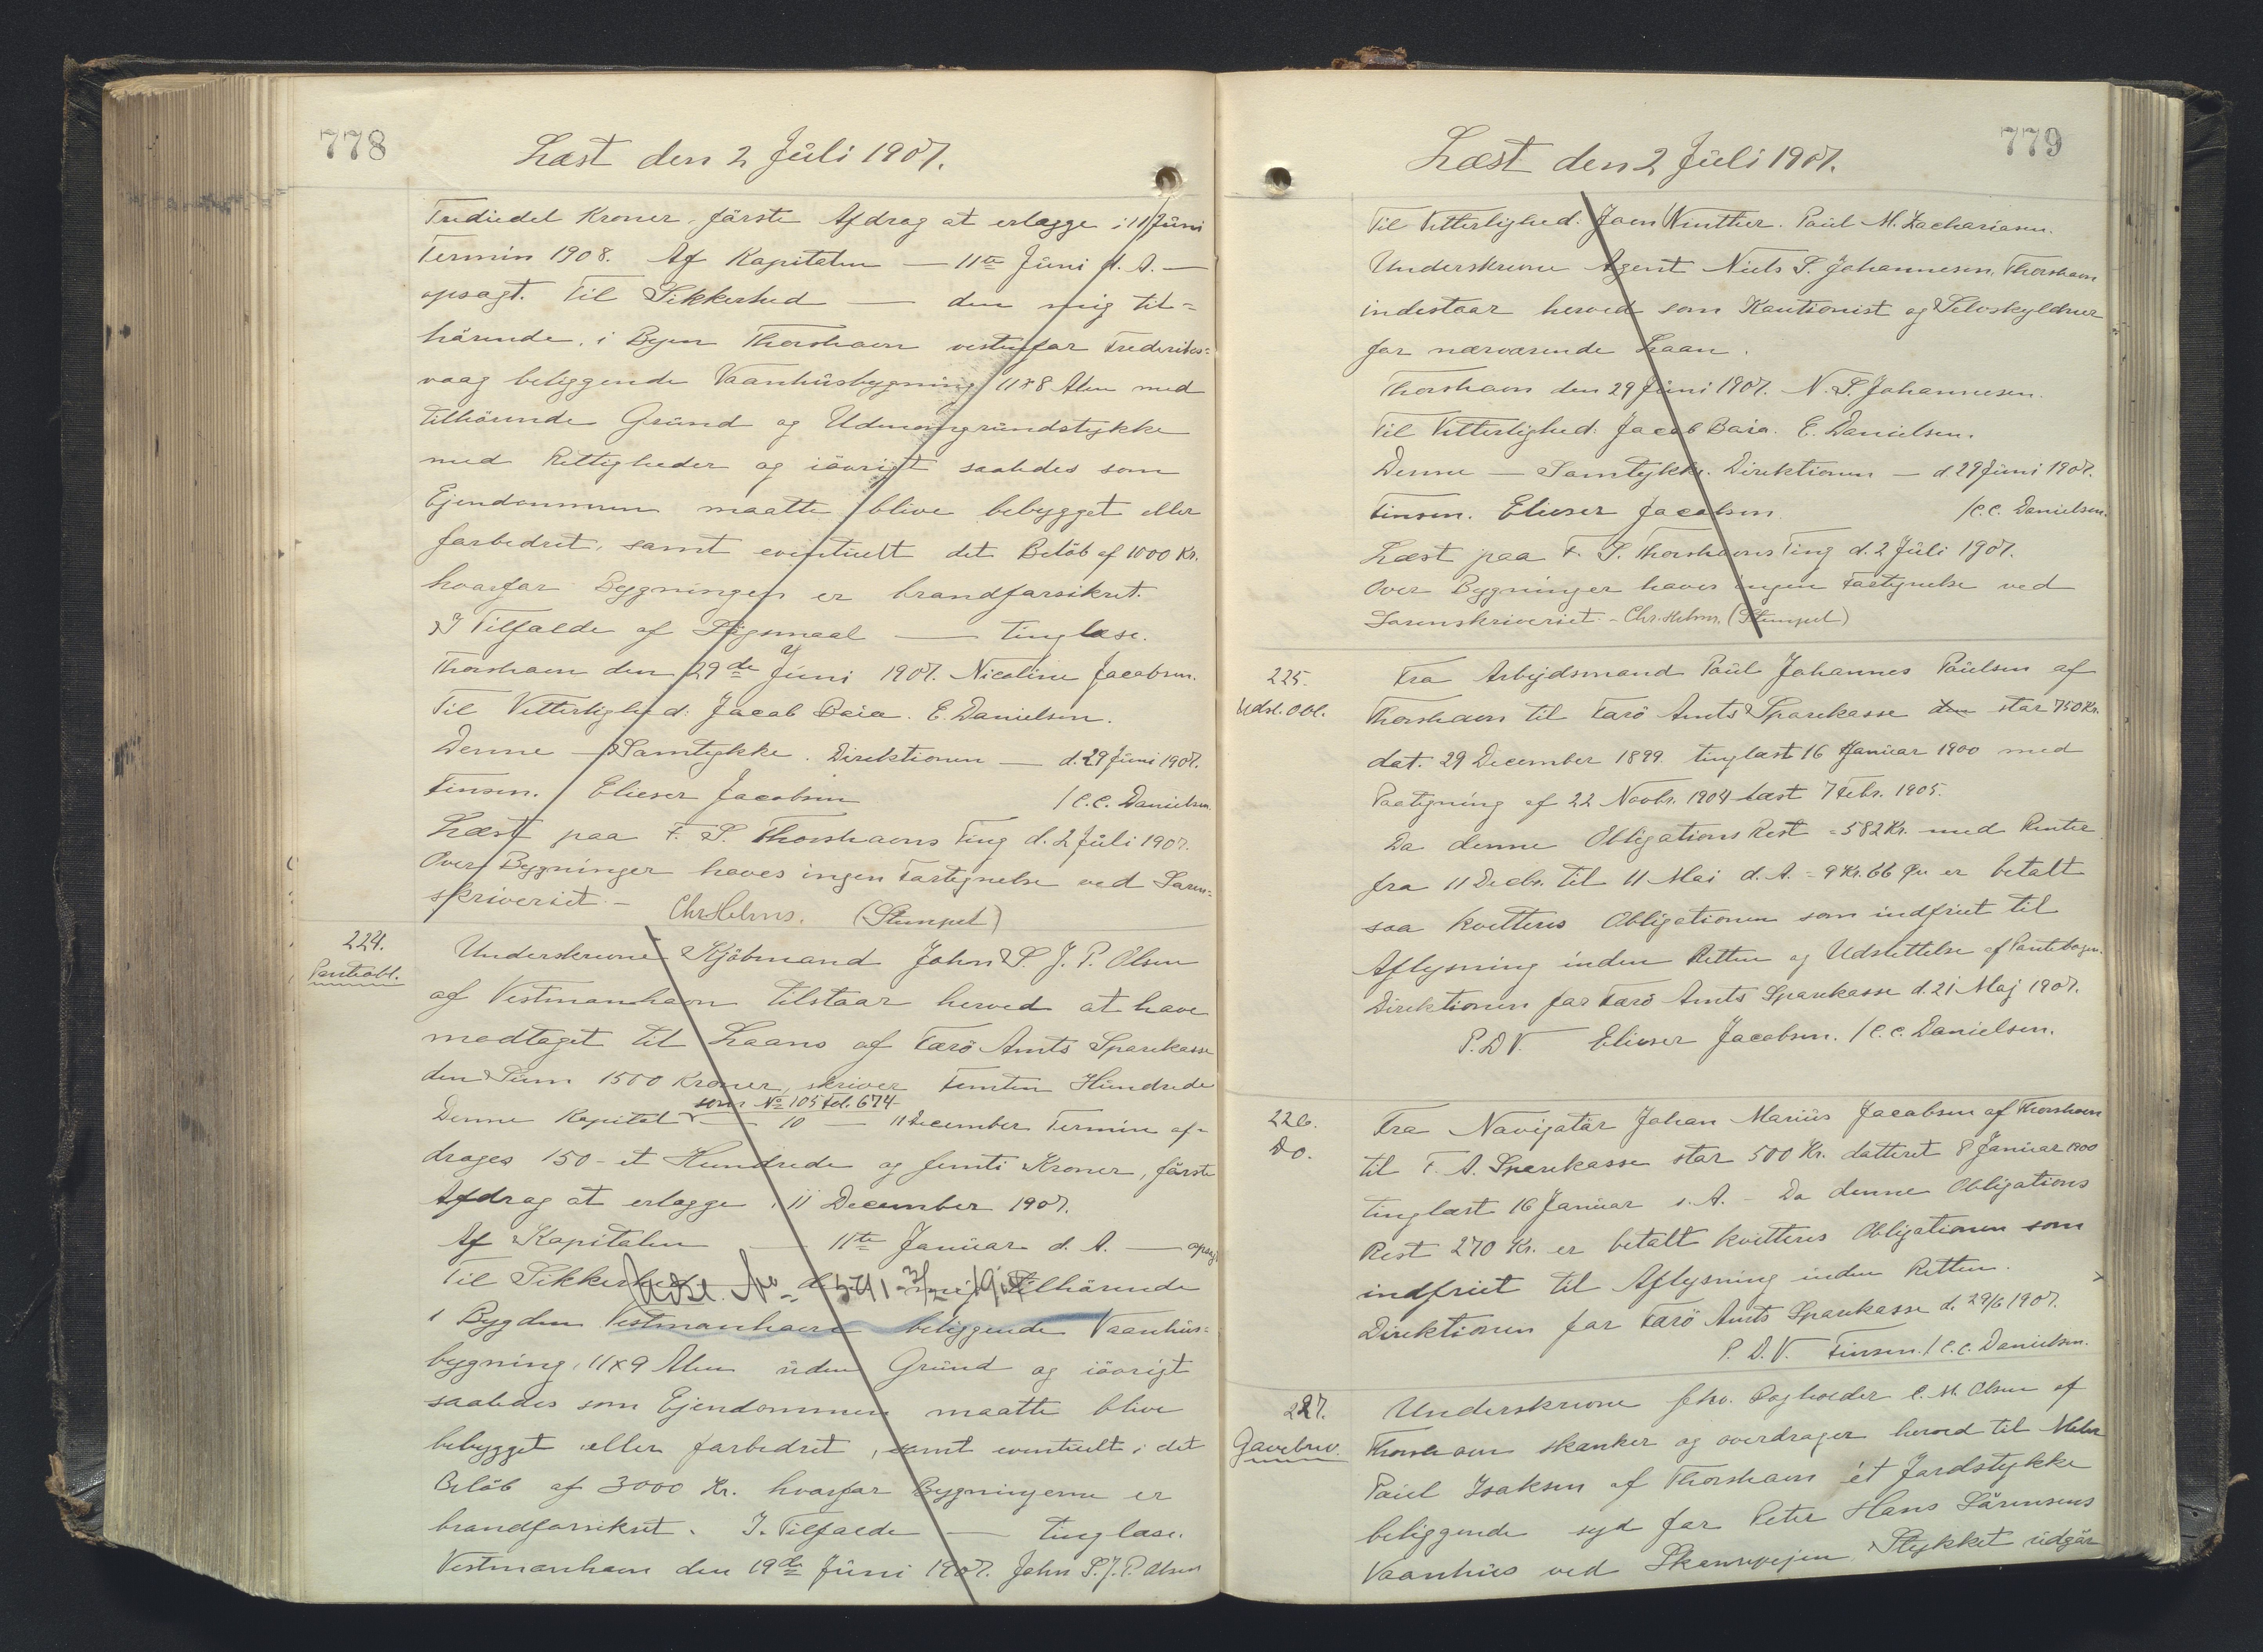 778
Læst den 2 Juli 1907.
Trediedel Kroner, förste Afdrag at erlægge i 11 Juni
Termin 1908. Af Kapitalen — 11te Juni d. A. —
opsagt. Til Sikkerhed — den mig til=
hörende, i Byen Thorshavn vestenfor Frederiks=
vaag beliggende Vaanhusbygning 11x8 Alen med
tilhörende Grund og Udmarsgrundstykke
med Rettigheder og iövrigt saaledes som
Ejendommen maatte blive bebygget eller
forbedret, samt eventuelt det Belöb af 1000 Kr.
hvorfor Bygningen er brandforsikret.
I Tilfælde af Sögsmaal — tinglæse.
Thorshavn den 29de Juni 1907. Nicoline Jacobsen.
Til Vitterlighed: Jacob Baia. E. Danielsen.
Denne — Samtykke. Direktionen — d. 29 Juni 1907.
Finsen. Elieser Jacobsen /C.C. Danielsen.
Læst paa F. S. Thorshavns Ting d. 2 Juli 1907.
Over Bygninger haves ingen Fastegnelse ved Soren=
skriveriet. – Chr. Helms. (Stempel)
224.
Panteobl.
Underskrevne Kjöbmand John S. J. P. Olsen
af Vestmanhavn tilstaar herved at have
modtaget til Laans af Færö Amts Sparekasse
den Sum 1500 Kroner, skriver Femten Hundrede
som No 105 Fol. 674
Denne Kapital — 10 — 11 December Termin af-
drages 150 - et Hundrede og femti Kroner, förste
Afdrag at erlægge i 11 December 1907.
Af Kapitalen — 11te Januar d. A. — opsagt
Til Sikkerhed — den mig tilhörende
Udsl. No
i Bygden Vestmanhavn beliggende Vaanhus=
bygning, 11x9 Alen uden Grund og iövrigt
saaledes som Ejendommen maatte blive
bebygget eller forbedret, samt eventuelt i det
Belöb af 3000 Kr. hvorfor Bygningerne er
brandforsikret. I Tilfælde — tinglæse.
Vestmanhavn den 19de Juni 1907. John S. J. P. Olsen
779
Læst den 2 Juli 1907.
Til Vitterlighed: Joen Winther. Paul M. Zachariasen.
Underskrevne Agent Niels P. Johannesen, Thorshavn
indestaar herved som Kautionist og Selvskyldner
for nærværende Laan.
Thorshavn den 29 Juni 1907. N. P. Johannesen.
Til Vitterlighed: Jacob Baia. E. Danielsen.
Denne — Samtykke. Direktionen — d. 29 Juni 1907.
Finsen. Elieser Jacobsen /C.C. Danielsen.
Læst paa F. S. Thorshavns Ting d. 2 Juli 1907.
Over Bygninger haves ingen Fastegnelse ved
Sorenskriveriet. – Chr. Helms. (Stempel)
225.
Udsl. Obl.
Fra Arbejdsmand Paul Johannes Paulsen af
Thorshavn til Færö Amts Sparekasse den stor 750 Kr.
dat. 29 December 1899. tinglæst 16 Januar 1900 med
Paategning af 22 Novbr. 1904 læst 7 Febr. 1905.
Da denne Obligations Rest = 582 Kr. med Renter
fra 11 Decbr. til 11 Mai d. A. = 9 Kr. 66 Øre er betalt
saa kvitteres Obligationen som indfriet til
Aflysning inden Retten og Udslettelse af Pantebogen.
Direktionen for Færö Amts Sparekasse d. 21 Maj 1907.
P. D. V. Elieser Jacobsen. /C.C. Danielsen.
226.
Do.
Fra Navigatör Johan Marius Jacobsen af Thorshavn
til F. A. Sparekasse stor 500 Kr. datteret 8 Januar 1900
tinglæst 16 Januar s. A. – Da denne Obligations
Rest 270 Kr. er betalt kvitteres Obligationen som
indfriet til Aflysning inden Retten.
Direktionen for Færö Amts Sparekasse d. 29/6 1907.
P. D. V. Finsen. /C.C. Danielsen.
227.
Gavebrev.
Underskrevne fhv. Bogholder C. M. Olsen af
Thorshavn skænker og overdrager herved til
Paul Isaksen af Thorshavn ét Jordstykke
beliggende syd for Peter Hans Sörensens
Vaanhus ved Skansevejen. Stykket udgör